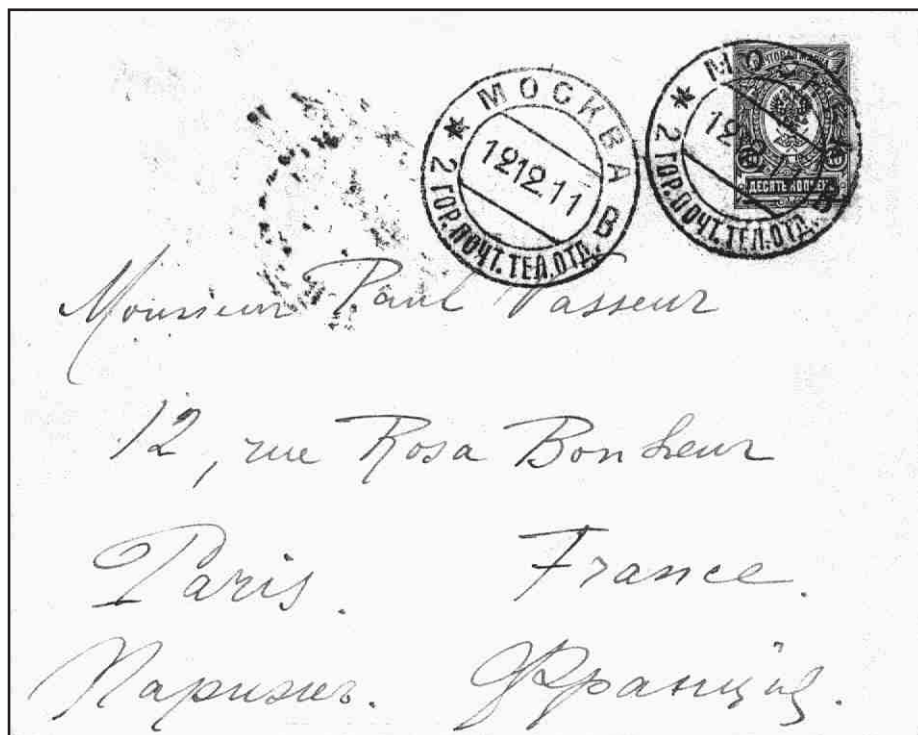 МОСКВА
12 12.11
2 ГОР.ПОЧТ.ТЕЛ.ОТД. В
МОСКВА
2 ГОР.ПОЧТ.ТЕЛ.ОТД. В
ПОЧТОВАЯ МАРКА
10 10
ДЕСЯТЬ КОПѢЕКЪ
Monsieur Paul Vasseur
12, rue Rosa Bonheur
Paris. France.
Парижъ. Франція.